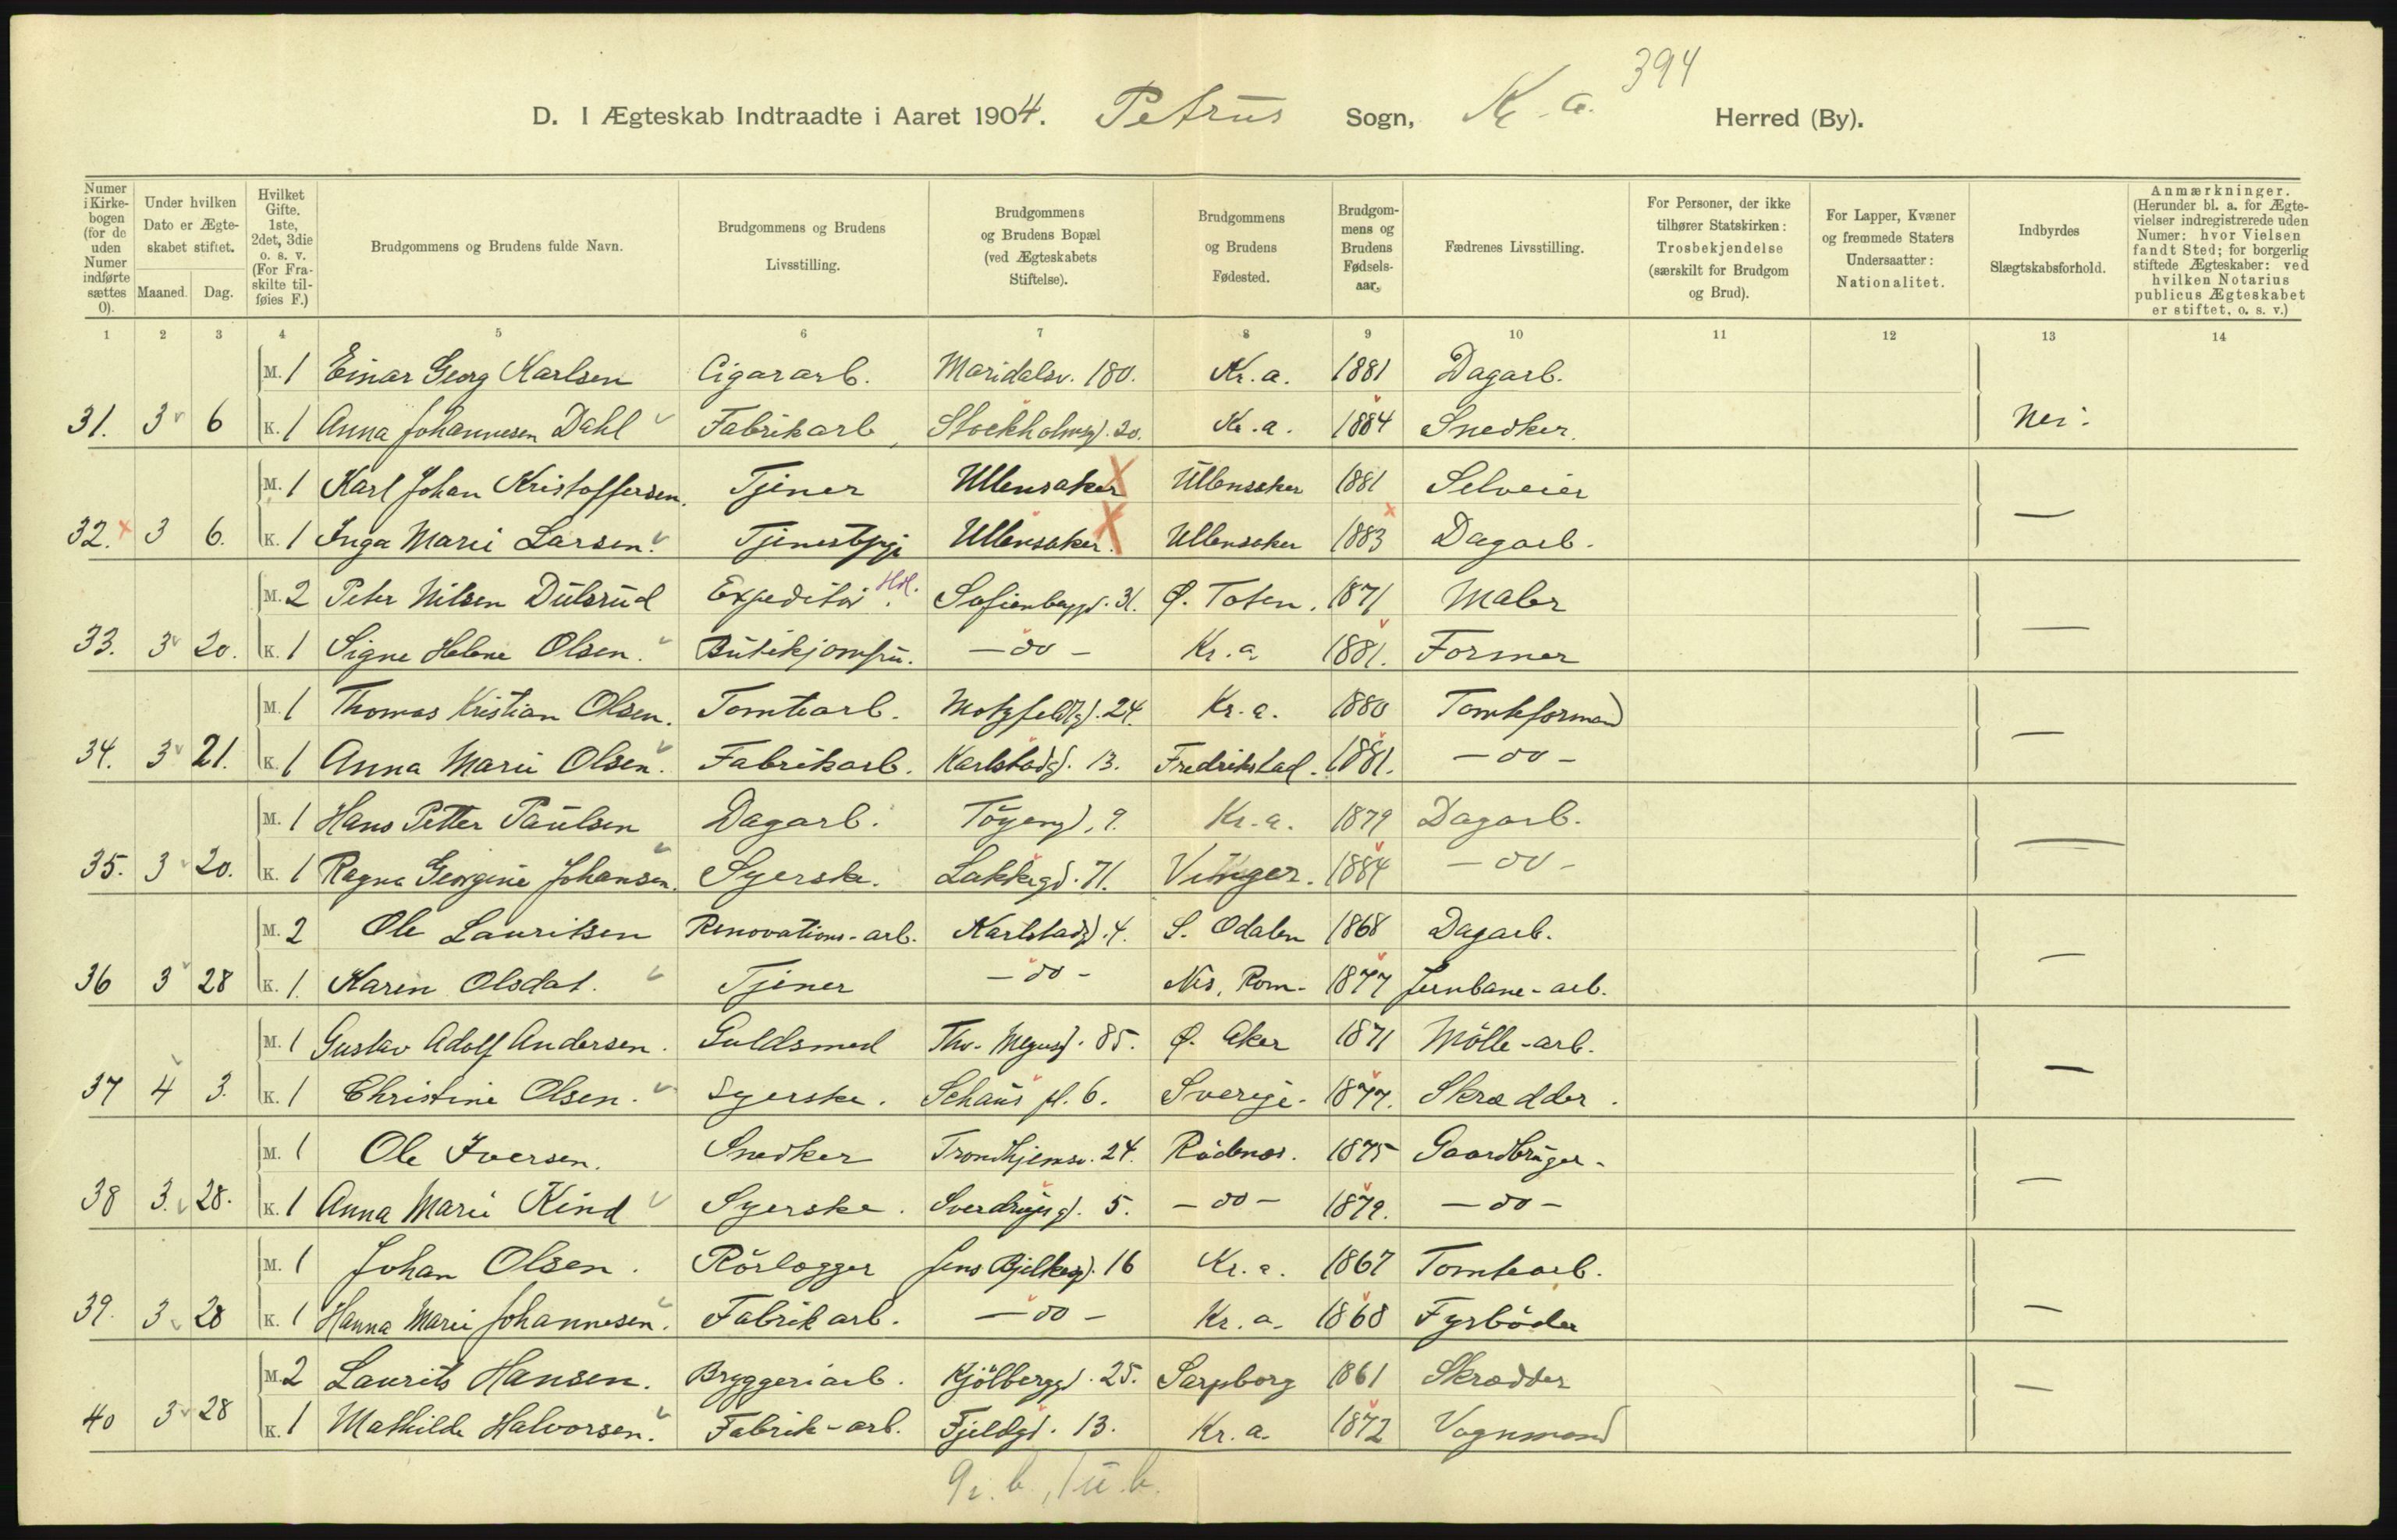 394
D. I Ægteskab Indtraadte i Aaret 1904. Petrus Sogn, K.a. Herred (By).
Numer i Kirkebogen (for de uden Numer indførte sættes 0).
Under hvilken Dato er Ægteskabet stiftet.
Maaned. Dag.
Hvilket Gifte. 1ste, 2det, 3die o. s. v. (For Fraskilte tilføies F.)
Brudgommens og Brudens fulde Navn.
Brudgommens og Brudens Livsstilling.
Brudgommens og Brudens Bopæl (ved Ægteskabets Stiftelse).
Brudgommens og Brudens Fødested.
Brudgommens og Brudens Fødselsaar.
Fædrenes Livsstilling.
For Personer, der ikke tilhører Statskirken: Trosbekjendelse (særskilt for Brudgom og Brud).
For Lapper, Kvæner og fremmede Staters Undersaatter: Nationalitet.
Indbyrdes Slægtskabsforhold.
Anmærkninger. (Herunder bl. a. for Ægtevielser indregistrerede uden Numer: hvor Vielsen fandt Sted; for borgerlig stiftede Ægteskaber: ved hvilken Notarius publicus Ægteskabet er stiftet, o. s. v.)
1 2 3 4 5 6 7 8 9 10 11 12 13 14
M. 1 Einar Georg Karlsen Cigararb. Maridalsv. 180. Kr.a. 1881 Dagarb.
31. 3 6 K. 1 Anna Johannesen Dahl Fabrikarb, Stockholmsgd. 20. Kr.a. 1884 Snedker. Nei.
M. 1 Karl Johan Kristoffersen. Tjener Ullensaker Ullensaker 1881 Selveier
32. 3 6. K. 1 Inga Marie Larsen. Tjenestepige Ullensaker. Ullensaker 1883 Dagarb. —
M. 2 Peter Nilsen Dulsrud Expeditør Hdl. Sofienberggd. 31. Ø. Toten. 1871 Maler
33. 3 20. K. 1 Signe Helene Olsen. Butikjomfru. — do — Kr.a 1881. Former —
M. 1 Thomas Kristian Olsen. Tomtearb. Motzfeldtgd. 24. Kr.a. 1880 Tomteformand
34. 3 21. K. 1 Anna Marie Olsen. Fabrikarb. Karlstadgd. 13. Fredrikstad. 1881. — do — —
M. 1 Hans Petter Paulsen Dagarb. Töyengd. 9. Kr.a. 1879 Dagarb.
35. 3 20. K. 1 Ragna Georgine Johansen. Syerske. Lakkegd. 71. Vinger. 1884 — do — —
M. 2 Ole Lauritsen Renovations-arb. Karlstadgd. 4. S. Odalen 1868 Dagarb.
36 3 28 K. 1. Karen Olsdat. Tjener — do — Nes, Rom. 1877 Jernbane-arb. —
M. 1 Gustav Adolf Andersen. Guldsmed Thv. Meyersgd. 85. Ø. Aker 1871 Mölle-arb.
37 4 3. K. 1 Christine Olsen. Syerske. Schaus pl. 6. Sverige. 1877. Skrædder. —
M. 1 Ole Iversen. Snedker Trondhjemsv. 24. Rödenæs. 1875 Gaardbruger.
38 3. 28. K. 1 Anna Marie Kind Syerske. Sverdrupsgd. 5. — do — 1879. — do — —
M. 1 Johan Olsen. Rörlægger Jens Bjelkesgd. 16 Kr.a. 1867 Tomtearb.
39. 3 28 K. 1 Hanna Marie Johannesen. Fabrikarb. — do — Kr.a. 1868 Fyrböder —
M. 2 Laurits Hansen. Bryggeriarb. Kjölberggd. 25. Sarpsborg 1861 Skrædder
40 3 28 K. 1 Mathilde Halvorsen. Fabrik-arb. Fjeldgd. 13. Kr.a. 1872 Vognmand —
9 i. b., 1 u. b.